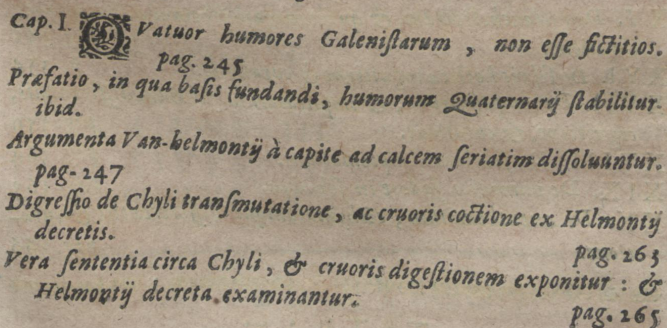 Cap. I. QVatuor humores Galeniſtarum, non eſſe fictitios.
pag. 245
Præfatio, in qua baſis fundandi, humorum Quaternarij ſtabilitur
ibid.
Argumenta Van-helmontij à capite ad calcem ſeriatim diſſoluuntur.
pag. 247
Digreſſio de Chyli tranſmutatione, ac cruoris coctione ex Helmontij
decretis. pag. 263
Vera ſententia circa Chyli, & cruoris digeſtionem exponitur : &
Helmontij decreta examinantur. pag. 265